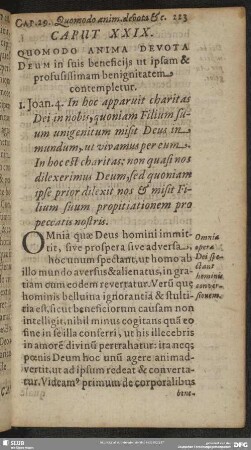 CAP. 29. Quomodo anim. devota &c. 113
CAPUT XXIX.
QUOMODO ANIMA DEVOTA
DEUM in suis beneficijs ut ipsam &
profusissimam benignitatem
contempletur.
1. Joan. 4. In hoc apparuit charitas
Dei in nobis, quoniam Filium su-
um unigenitum misit Deus in
mundum, ut vivamus per eum.
In hoc est charitas; non quasi nos
dilexerimus Deum, sed quoniam
ipse prior dilexit nos & misit Fi-
lium suum propitiationem pro
peccatis nostris.
OMnia quæ Deus homini immit-
tit, sive prospera sive adversa,
hoc unum spectant, ut homo ab
illo mundo aversus & alienatus, in gra-
tiam cum eodem revertatur. Verū que
hominis belluina ignorantia & stulti-
tia est, sicut beneficiorum causam non
intelligit, nihil minus cogitans quā eo
fine in se illa conferri, ut his illecebris
in amorē divinū pertrahatur: ita neq;
pœnis Deum hoc unū agere animad-
vertit, ut ad ipsum redeat & converta-
tur. Videamꝰ primum de corporalibus
bene-
Omnia
opera
Dei spe-
ctant
hominis
conver-
sionem.